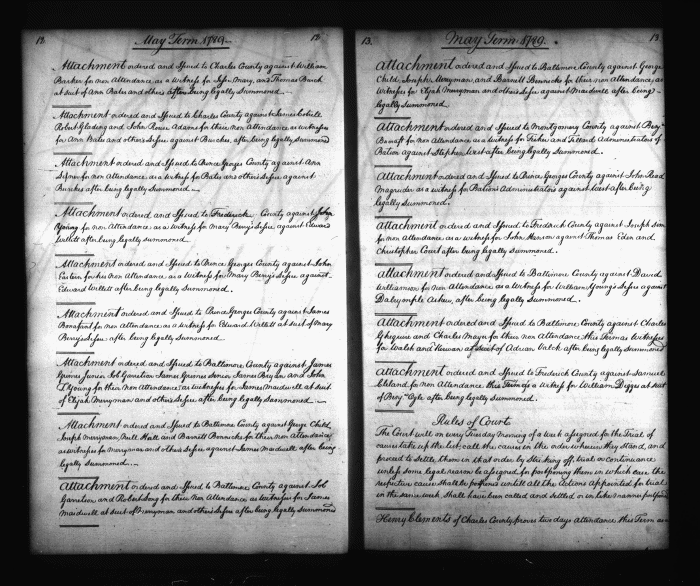 12. May Term 1789. 12.
Attachment ordered and Issued to Charles County against William
Barker for non Attendance as a Witness for Jesse, Mary, and Thomas
at suit of Ann Bates and others after being legally Summoned.
Attachment ordered and Issued to Charles County against James
Robert Glading and John Rouse Adams for their non Attendance as witnesses
for Ann Bates and others Lessee against Buches after being legally Summoned
Attachment ordered and Issued to Prince Georges County against Ann
for non Attendance, as a witness for Bates and others Lessee against
Buches after being legally Summoned.
Attachment ordered and Issued to Frederick County against John
Young for non Attendance, as a Witness for Mary Berry's Lessee against Edward
Willett after being legally Summoned
Attachment ordered and Issued to Prince Georges County against John
for his non Attendance as a Witness for Mary Berry's Lessee against
Edward Willett after being legally Summoned.
Attachment ordered and Issued to Prince Georges County against James
for non Attendance as a Witness for Edward Willett at suit of Mary
Berry's Lessee after being legally Summoned.
Attachment ordered and Issued to Baltimore County against James
James Bryan and John
Young for their non Attendance as witnesses for James Maidwell at suit
of Elijah Merryman and others Lessee after being legally Summoned.
Attachment ordered and Issued to Baltimore County against George Child,
Joseph Merryman, and Barnett for their non Attendance
as witnesses for Merryman and others Lessee against James Maidwell after being
legally Summoned.
Attachment ordered and Issued to Baltimore County against Job
and Robert Long for their non Attendance as witnesses for James
Maidwell at suit of Merryman and others Lessee after being legally Summoned
13. May Term 1789. 13
Attachment ordered and Issued to Baltimore County against George
Child, Joseph Merryman, and Barnett for their non Attendance, as
witnesses for Elijah Merryman and others Lessee against Maidwell after being
legally Summoned.
Attachment ordered and Issued to Montgomery County against Benj.
for non Attendance as a witness for Fisher and Administrators of
against Stephen West after being legally Summoned.
Attachment ordered and Issued to Prince Georges County against John Read
Magruder as a witness for Administrators against West after being
legally Summoned.
Attachment ordered and Issued to Fredrick County against Joseph
for non Attendance as a witness for John Henson against Thomas Eden and
Christopher Court after being legally Summoned.
Attachment ordered and Issued to Baltimore County against David
Williamson for non Attendance as a Witness for William Young's Lessee against
Dalrymple after being legally Summoned.
Attachment ordered and Issued to Baltimore County against Charles
Ghequiere and Charles for their non Attendance this Term as Witnesses
for Walsh and at suit of Adrian Valck after being legally Summoned
Attachment ordered and Issued to Frederick County against Samuel
Cleland for non Attendance this Term as a witness for William Diggs at suit
of Benj. Ogle after being legally Summoned.
Rules of Court
The Court will on every Tuesday Morning of a week assigned for the Trial of
causes take up the list, call the causes in the order wherein they stand, and
proceed to settle them in that order by Striking off, trial or Continuance
unless some legal reason be assigned for postponing them in which case the
respective causes shall be postponed until all the Actions appointed for trial
in the same week shall have been called and settled or in like manner postponed
Henry Clements of Charles County proves two days Attendance this Term as a